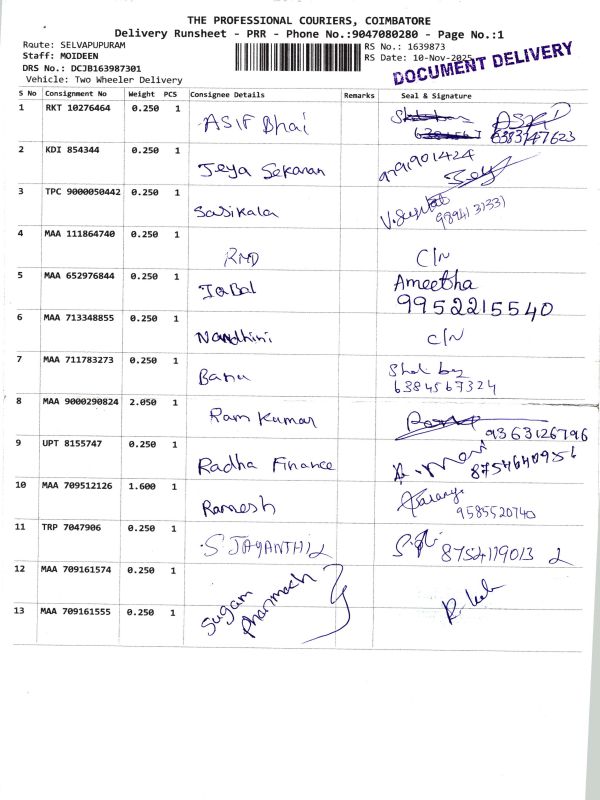 THE PROFESSIONAL COURIERS, COIMBATORE
Delivery Runsheet - PRR - Phone No.:9047080280 - Page No.:1
Route: SELVAPUPURAM
Staff: MOIDEEN
DRS No.: DCJB163987301
Vehicle: Two Wheeler Delivery
RS No.: 1639873
RS Date: 10-Nov-2025
DOCUMENT DELIVERY
S No Consignment No Weight PCS Consignee Details Remarks Seal & Signature
1 RKT 10276464 0.250 1 ASIF Bhai
6383147623
2 KDI 854344 0.250 1 Jeya Sekaran 9791901424
3 TPC 9000050442 0.250 1 Sasikala 9894131331
4 MAA 111864740 0.250 1 RMD C/N
5 MAA 652976844 0.250 1 Iqbal Ameetha
9952215540
6 MAA 713348855 0.250 1 Nandhini C/N
7 MAA 711783273 0.250 1 Banu
6384567324
8 MAA 9000290824 2.050 1 Ram Kumar 9363126796
9 UPT 8155747 0.250 1 Radha Finance 8754640956
10 MAA 709512126 1.600 1 Ramesh
9585520740
11 TRP 7047906 0.250 1 S JAYANTHI
12 MAA 709161574 0.250 1 Sugam
Pharmacy
13 MAA 709161555 0.250 1